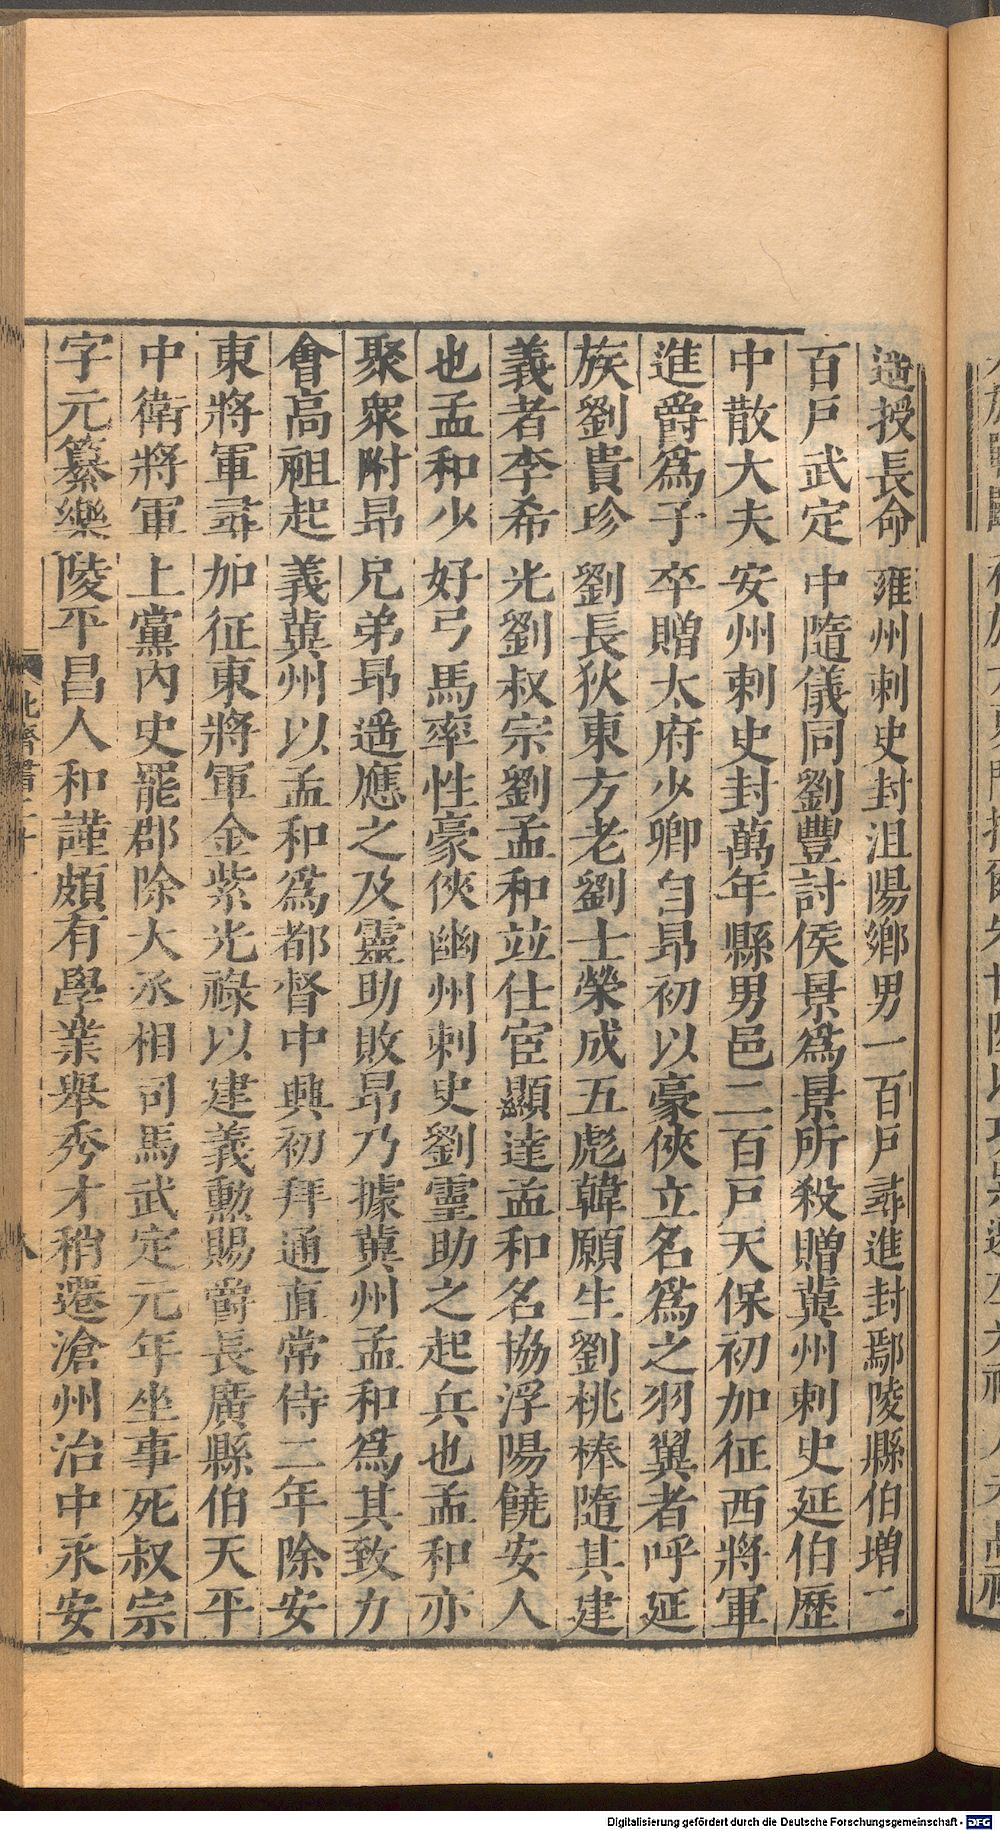 遥授長命雍州刺史封沮陽鄉男一百戶尋進封鄢陵縣伯增二
百戶武定中隨儀同劉豐討侯景爲景所殺贈冀州刺史延伯歷
中散大夫安州刺史封萬年縣男邑二百戶天保初加征西將軍
進爵爲子卒贈太府少卿自昂初以豪俠立名爲之羽翼者呼延
族劉貴珍劉長狄東方老劉士榮成五彪韓願生劉桃棒隨其建
義者李希光劉叔宗劉孟和竝仕宦顯達孟和名協浮陽饒安人
也孟和少好弓馬率性豪俠幽州刺史劉靈助之起兵也孟和亦
聚衆附昂兄弟昂遥應之及靈助敗昂乃據冀州孟和爲其致力
會高祖起義冀州以孟和爲都督中興初拜通直常侍二年除安
東將軍尋加征東將軍金紫光祿以建義勳賜爵長廣縣伯天平
中衛將軍上黨內史罷郡除大丞相司馬武定元年坐事死叔宗
字元纂樂陵平昌人和謹頗有學業舉秀才稍遷滄州治中永安
北齊書二十一
八
Digitalisierung gefördert durch die Deutsche Forschungsgemeinschaft - DFG